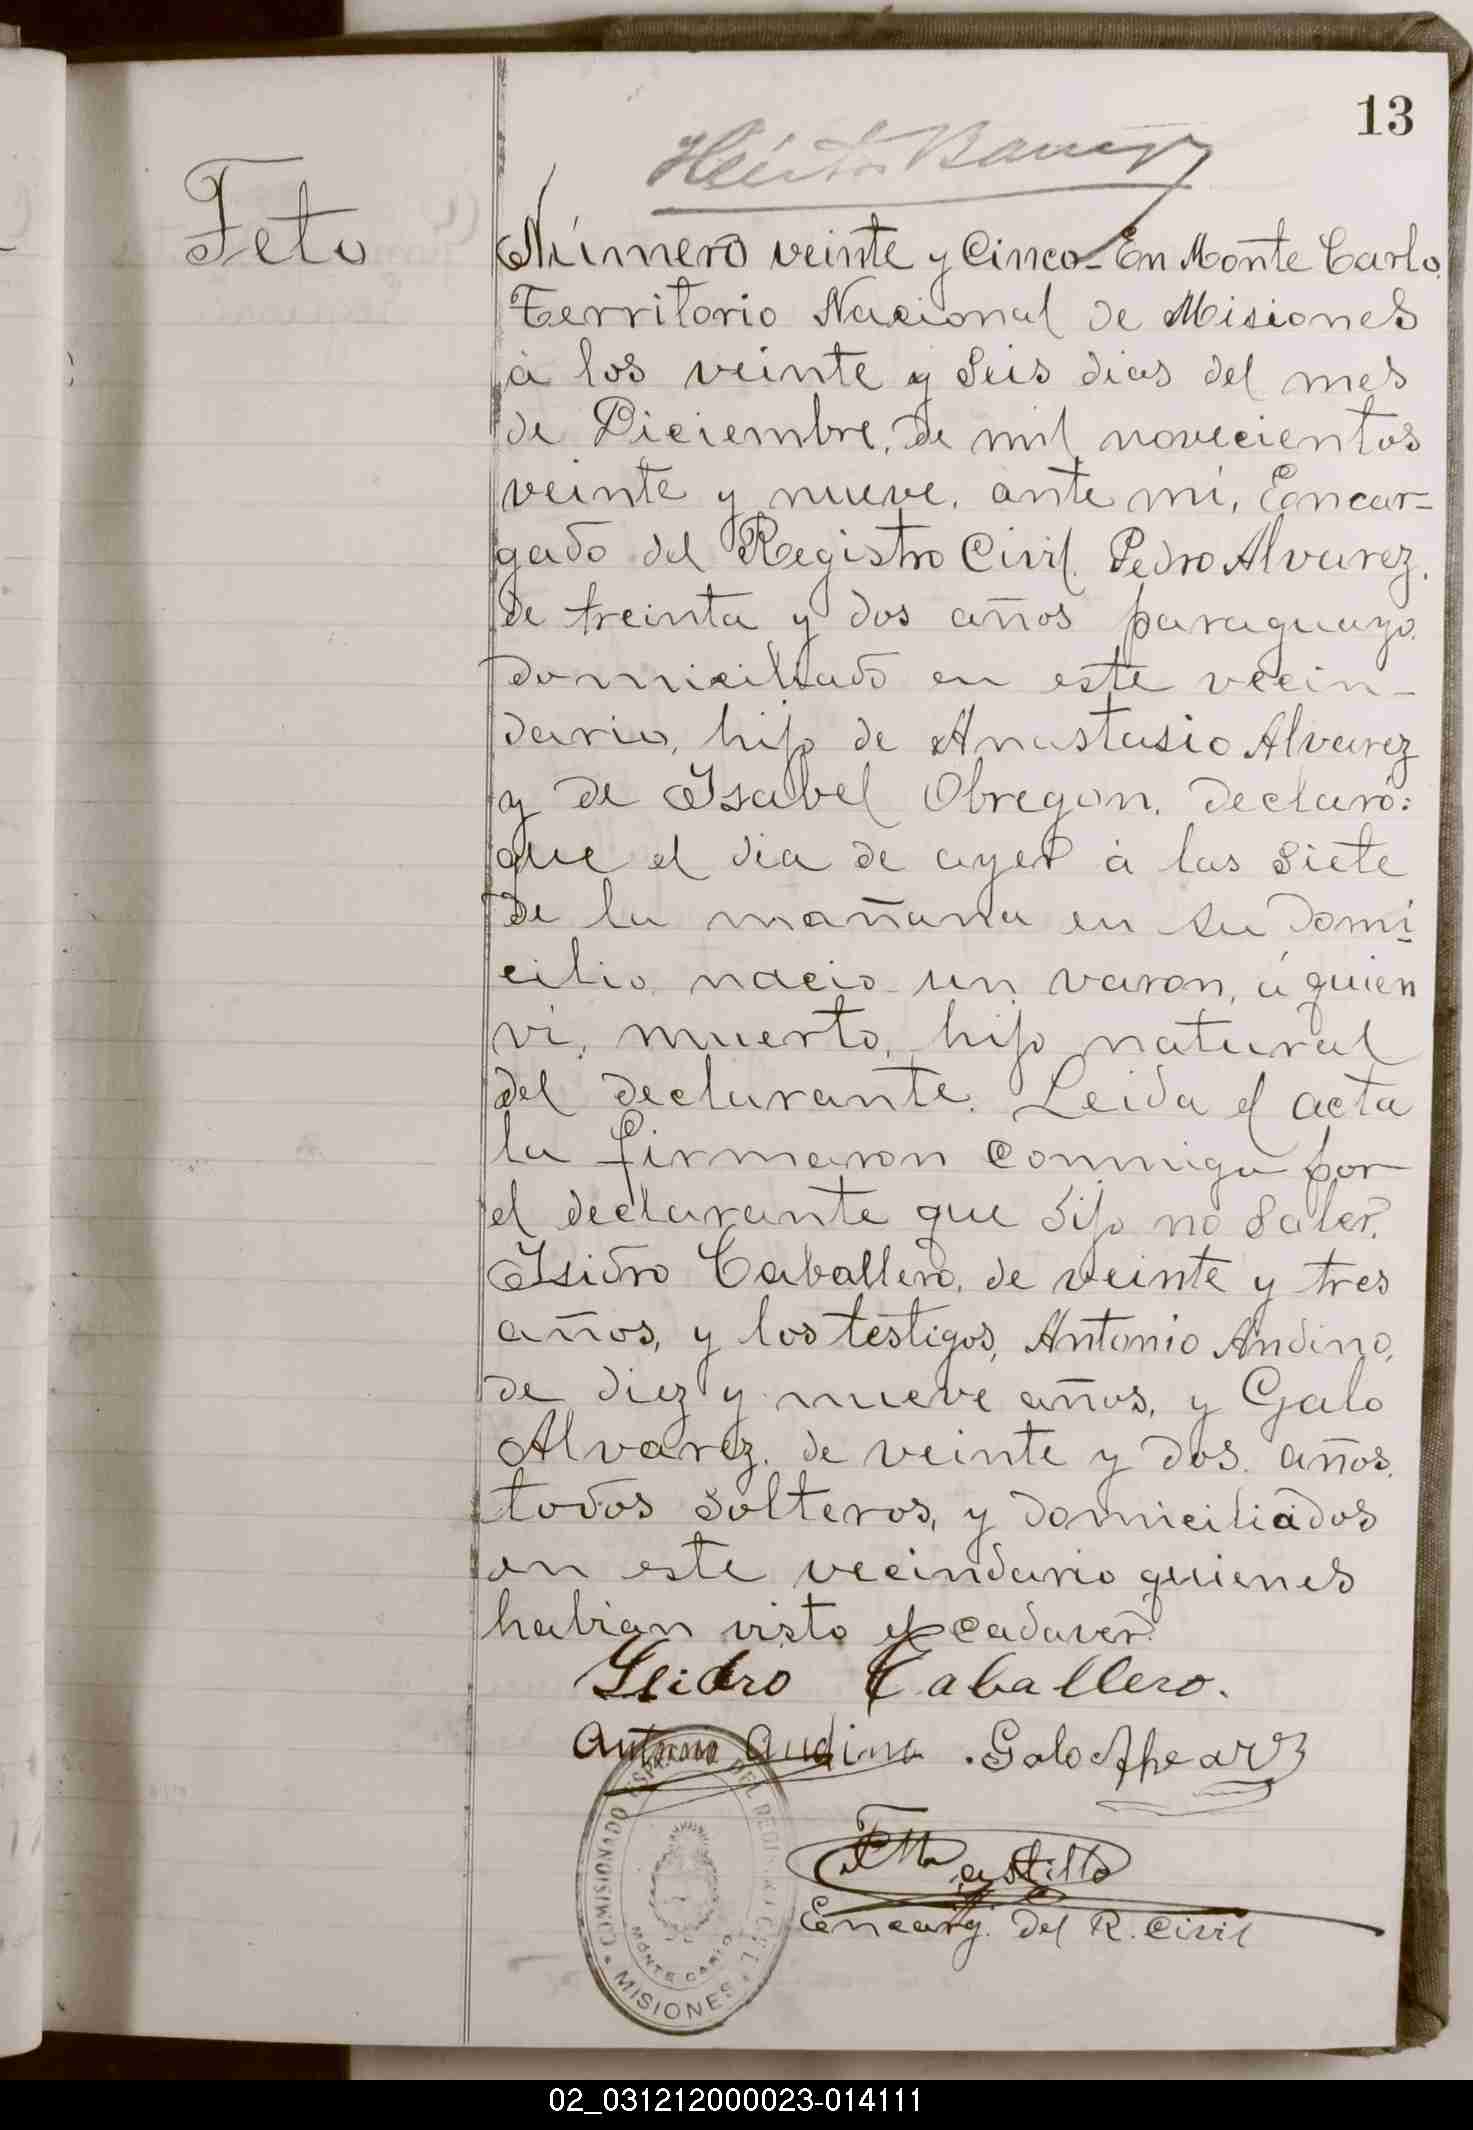 13
Feto
Número veinte y Cinco- En Monte Carlo,
Territorio Nacional de Misiones
á los veinte y Seis dias del mes
de Diciembre, de mil novecientos
veinte y nueve, ante mi, Encar-
gado del Registro Civil, Pedro Alvarez,
de treinta y dos años paraguayo,
domiciliado en este vecin-
dario, hijo de Anastasio Alvarez
y de Isabel Obregon, declaró:
que el dia de ayer á las siete
de la mañana en su domi-
cilio, nacio un varon, á quien
vi, muerto, hijo natural
del declarante. Leida el acta
la firmaron conmigo por
el declarante que dijo no saber,
Isidro Caballero, de veinte y tres
años, y los testigos, Antonio Andino,
de diez y nueve años, y Galo
Alvarez, de veinte y dos años,
todos solteros, y domiciliados
en este vecindario quienes
habian visto el cadaver.
Isidro Caballero.
Antonio Andino . Galo
Castillo
Encarg. del R. Civil
COMISIONADO DEL
MONTE CARLO
MISIONES
02_031212000023-014111